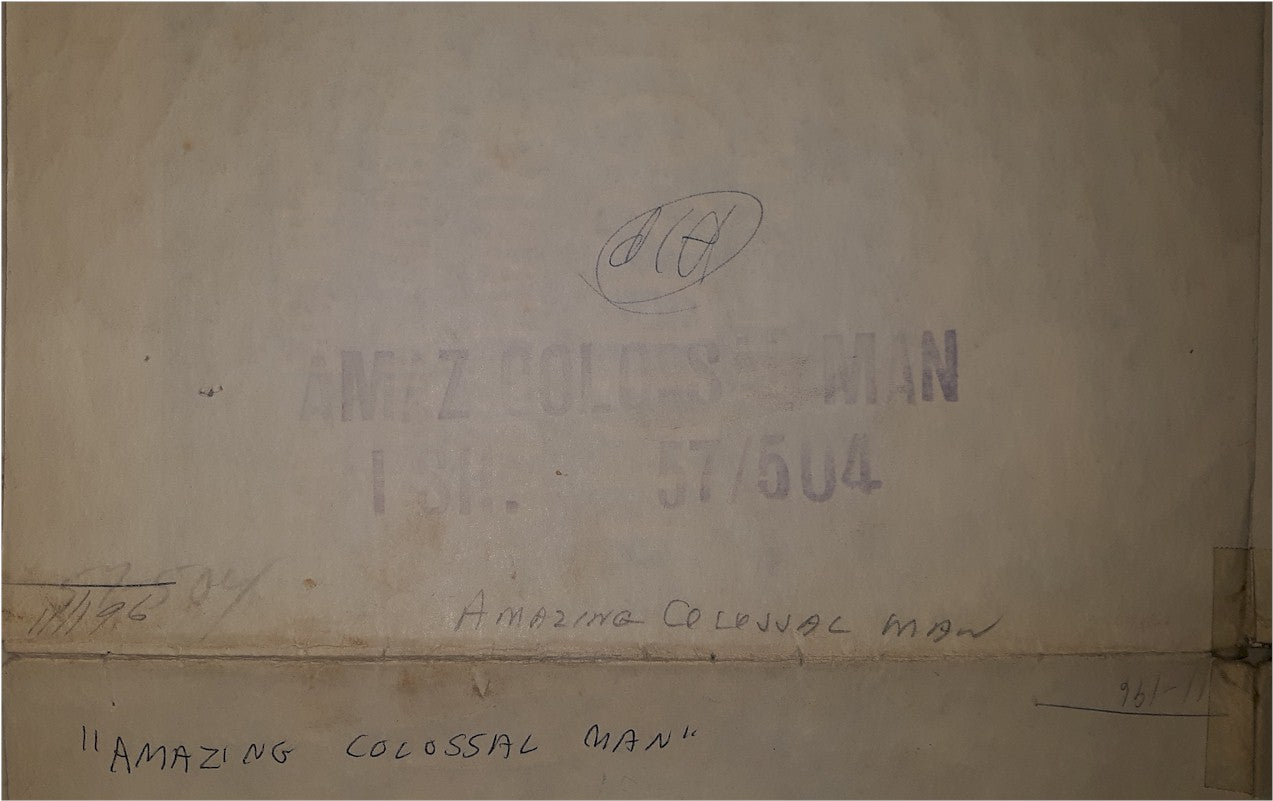 AMAZ COLOSSAL MAN
1 SH. 57/504
57 504
11/196
AMAZING COLOSSAL MAN
11-196
"AMAZING COLOSSAL MAN"